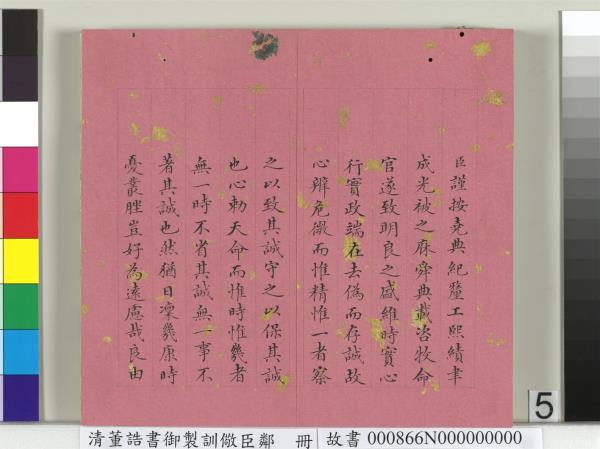 臣謹按堯典紀釐工熙績聿
成光被之庥舜典載咨牧命
官遂致明良之盛維時實心
行實政端在去偽而存誠故
心辨危微而惟精惟一者察
之以致其誠守之以保其誠
也心勅天命而惟時惟幾者
無一時不省其誠無一事不
著其誠也然猶日凜幾康時
憂叢脞豈好為遠慮哉良由
5
清董誥書御製訓儆臣鄰 冊
故書 000866N000000000